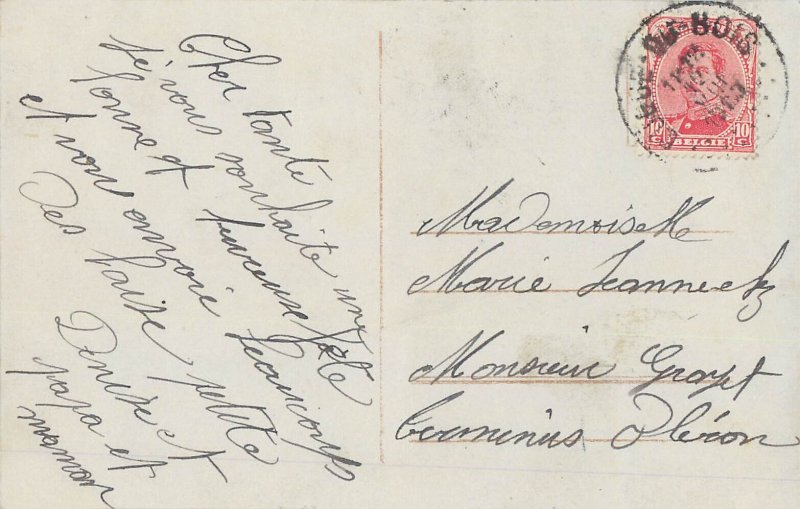 Cher tante
je vous souhaite une
bonne et heureuse fête
et vous envoie beaucoups
des baise petite
Denise et
papa et
maman
BOIS
10 10
C BELGIE C
Mademoiselle
Marie Jeanne chz
Monsieur
terminus Oléron